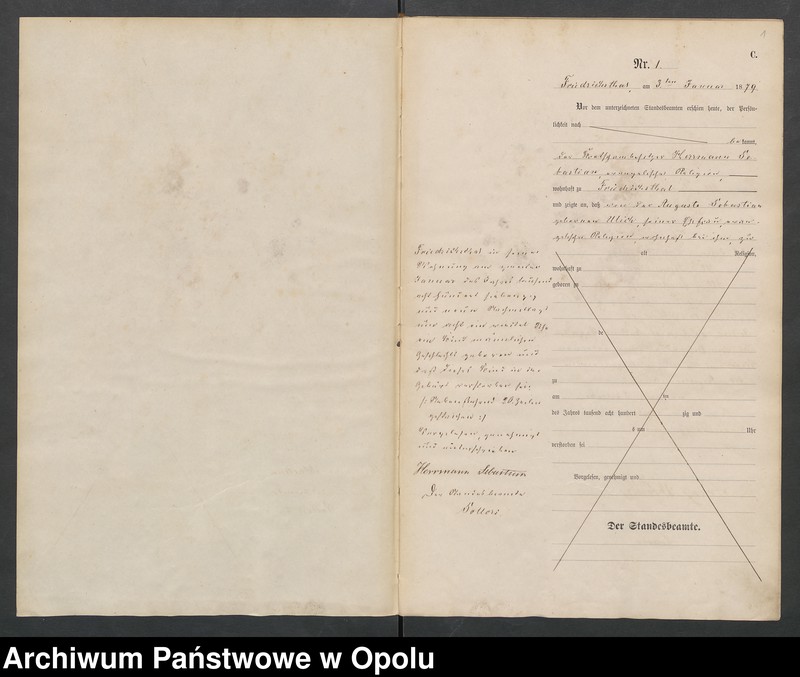 1
C.
Nr. 1.
Friedrichsthal, am 3ten Januar 1879.
Vor dem unterzeichneten Standesbeamten erschien heute, der Persön-
lichkeit nach
bekannt,
der Herrmann Se-
bastian, evangelischer Religion,
wohnhaft zu Friedrichsthal
und zeigte an, daß von der Auguste Sebastian
geborenen seiner Ehefrau, evan-
gelischer Religion, wohnhaft bei ihm, zu
alt Religion,
wohnhaft zu
geboren zu
de
zu
am ten
des Jahres tausend acht hundert zig und
s um Uhr
verstorben sei
Vorgelesen, genehmigt und
Der Standesbeamte.
Friedrichsthal in seiner
Wohnung am zweiten
Januar des Jahres tausend
acht hundert siebenzig
und neun Nachmittags
um acht ein viertel Uhr
ein Kind männlichen
Geschlechts geboren und
daß dieses Kind in der
Geburt verstorben sei.
/: Nebenstehend 20 Zeilen
gestrichen :/
Vorgelesen, genehmigt
und unterschrieben
Herrmann Sebastian
Der Standesbeamte
Archiwum Państwowe w Opolu